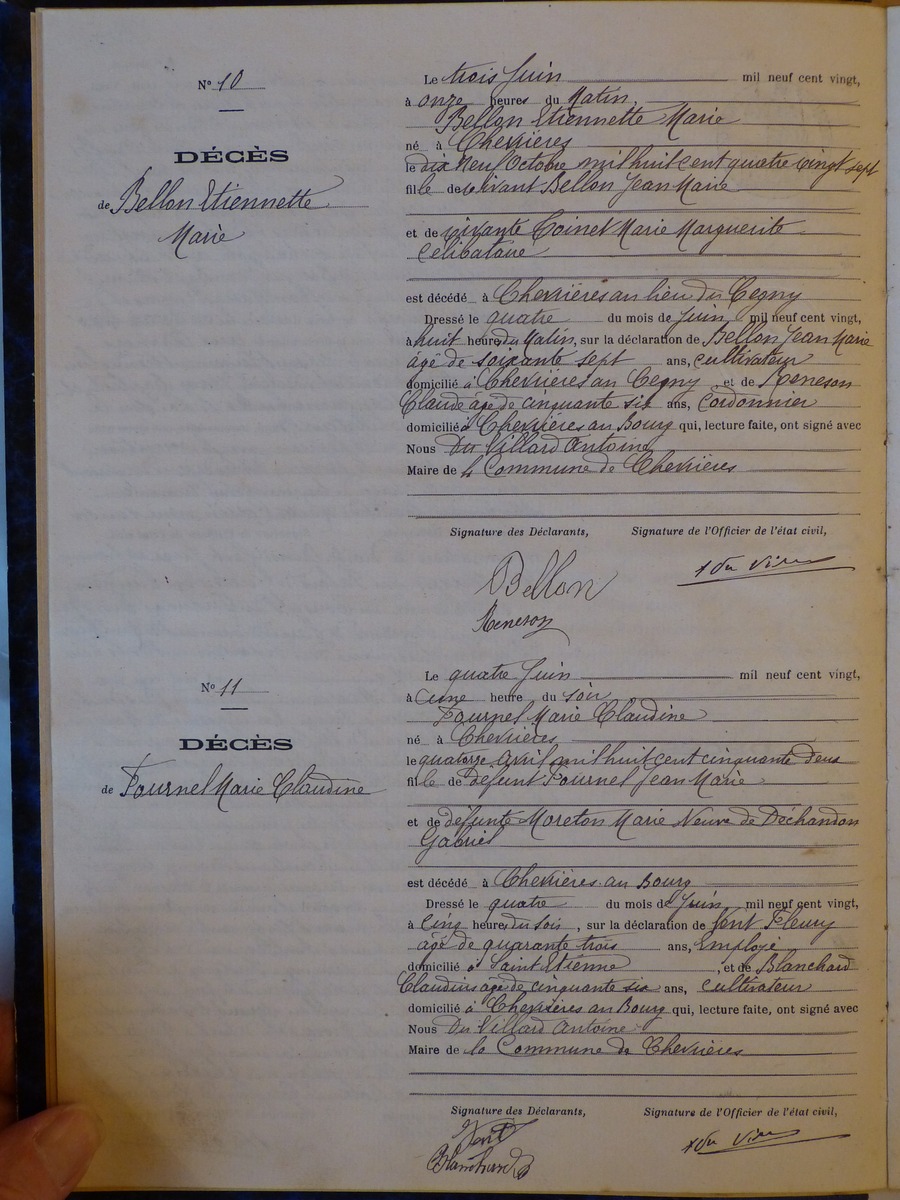 N° 10
DÉCÈS
de Bellon Etiennette
Marie
Le trois Juin mil neuf cent vingt,
à onze heures du Matin,
Bellon Etiennette Marie
né à Chevrières
le dix Neuf Octobre mil huit cent quatre vingt sept
fille de vivant Bellon Jean Marie
et de vivante Coinet Marie Marguerite
Célibataire
est décédé à Chevrières au lieu du Cegny
Dressé le quatre du mois de Juin mil neuf cent vingt,
à huit heures du Matin, sur la déclaration de Bellon Jean Marie
âgé de soixante sept ans, cultivateur
domicilié à Chevrières au Cegny et de Reneson
Claude âgé de cinquante six ans, Cordonnier
domicilié à Chevrières au Bourg qui, lecture faite, ont signé avec
Nous Du Villard Antoine
Maire de la Commune de Chevrières
Signature des Déclarants, Signature de l'Officier de l'état civil,
Bellon
Reneson
N° 11
DÉCÈS
de Fournel Marie Claudine
Le quatre Juin mil neuf cent vingt,
à une heure du soir
Fournel Marie Claudine
né à Chevrières
le quatorze avril mil huit cent cinquante deux
fille de défunt Fournel Jean Marie
et de défunte Moreton Marie Veuve de Déchandon
Gabriel
est décédé à Chevrières au Bourg
Dressé le quatre du mois de Juin mil neuf cent vingt,
à Cinq heures du soir, sur la déclaration de Vent Fleury
âgé de quarante trois ans, Employé
domicilié à Saint Etienne, et de Blanchard
Claudius âgé de cinquante six ans, cultivateur
domicilié à Chevrières au Bourg qui, lecture faite, ont signé avec
Nous Du Villard Antoine
Maire de la Commune de Chevrières
Signature des Déclarants, Signature de l'Officier de l'état civil,
Vent
Blanchard